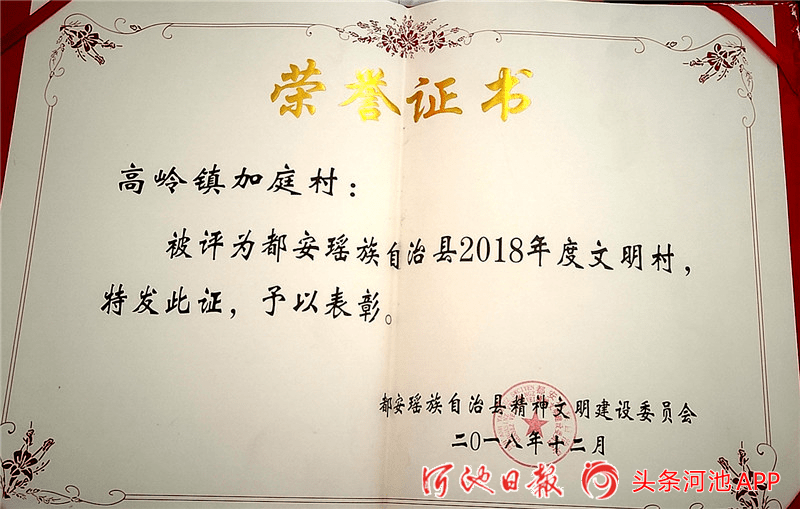 荣誉证书
高岭镇加庭村：
被评为都安瑶族自治县2018年度文明村，
特发此证，予以表彰。
都安瑶族自治县精神文明建设委员会
二〇一八年十二月
河池日报 头条河池 APP